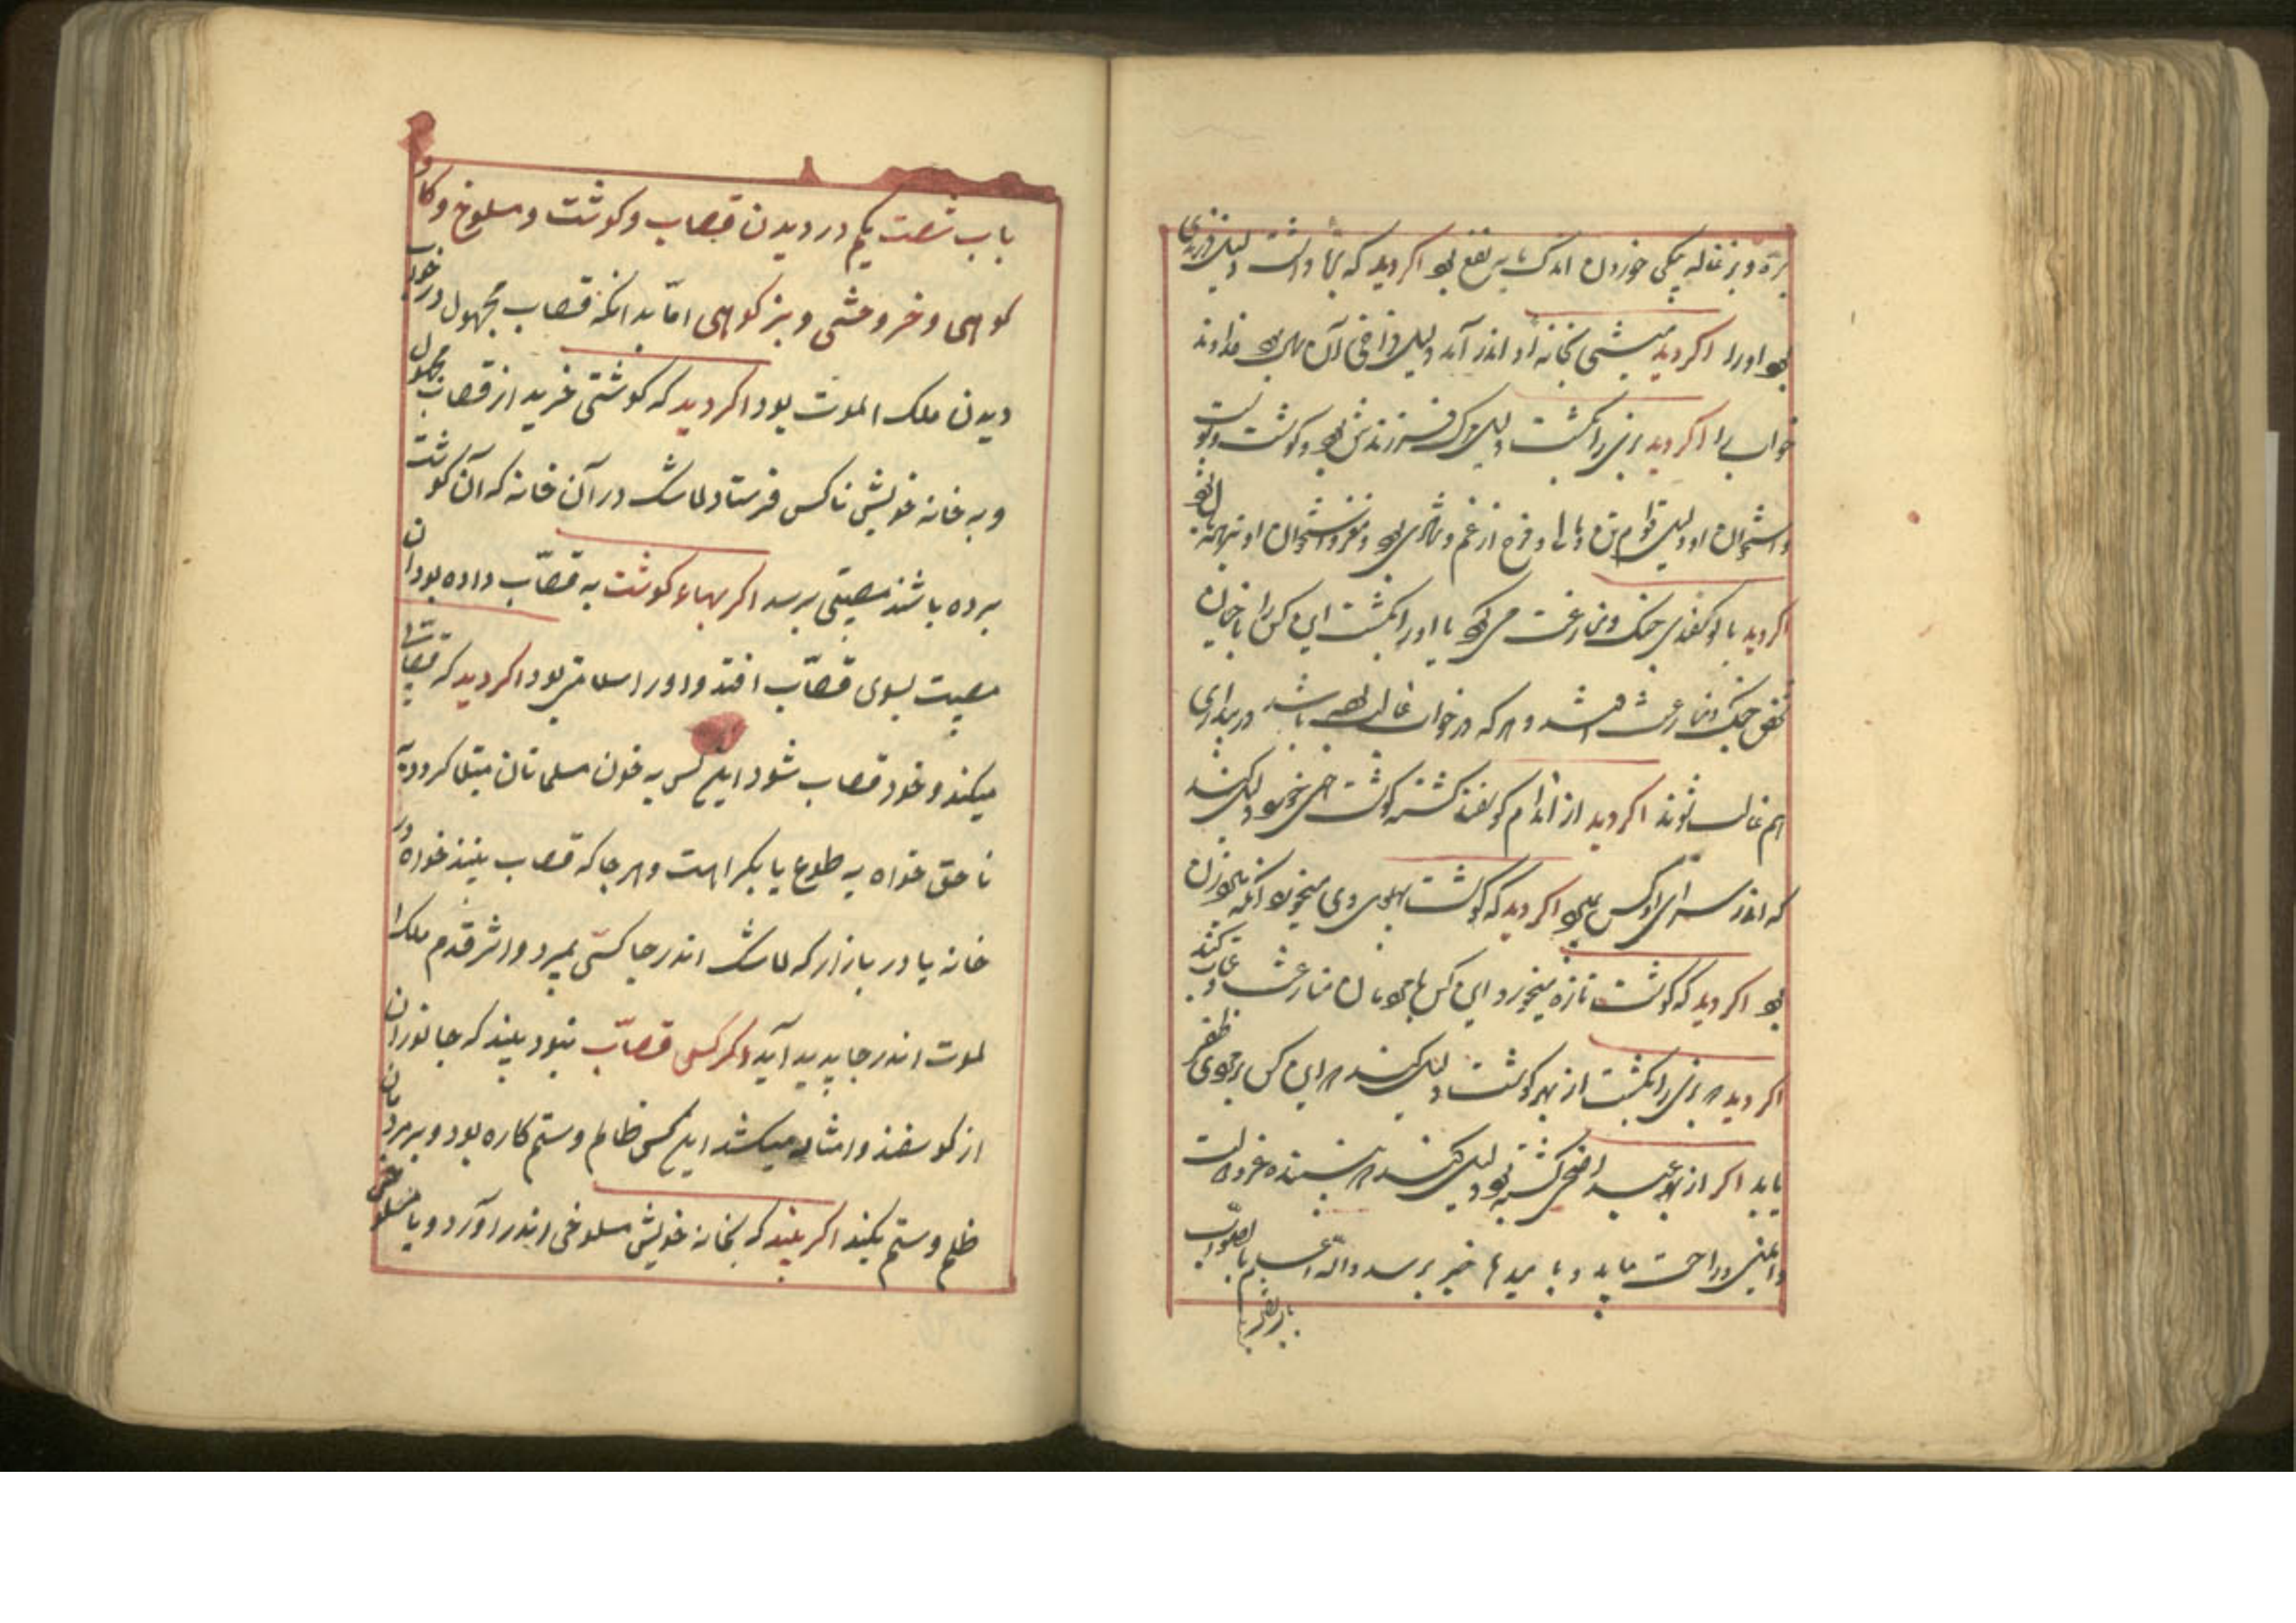 بره و بزغاله یکی خوردن اندک مایه نفع بود اکر دید که بره داشت دلیل فرزندی
بود اورا اکر دید میشی بخانه او اندر آید دلیل فراخی آن سال بود خداوند
خواب را اکر دید بزی را بکشت دلیل مرک فرزندش بود و کوشت و پوست
و استخوان او دلیل قوام تن و مال و فرح از غم و شادی بود و مغز و استخوان او
اکر دید با کوسفندی جنک و منازعت می بود یا اورا بکشت این کس را با
شخصی جنک و منازعت و هر که در خواب غالب باشد در بیداری
هم غالب شوند اکر دید از اندام کوسفند کشته کوشت همی خورد دلیل کند
که اندر سرای او کس بمیرد اکر دید که کوشت پهلوی وی میخورد
بود اکر دید که کوشت تازه میخورد این کس با منازعت و عتاب کند
اکر دید بزی را بکشت از بهر کوشت دلیل کند این کس بر ظفر
یابد اکر از بهر عید اضحی کشته بود دلیل کند
و ایمنی و راحت یابد و با میدها خیر برسد والله اعلم بالصواب
باب شصت یکم در دیدن قصاب و کوشت و مسلوخ و کاو
کوهی و خر وحشی و بز کوهی امّا بدانکه قصاب مجهول در خواب
دیدن ملک الموت بود اکر دید که کوشتی خرید از قصاب مجهول
و به خانه خویش ناکس فرستاد لاشک در آن خانه که آن کوشت
برده باشند مصیبتی برسد اکر بهاء کوشت به قصّاب داده بود آن
مصیبت بسوی قصّاب افتد و اورا سلامتی بود اکر دید که قصابی
میکند و خود قصاب شود این کس به خون مسلمانان مبتلا کردد به
ناحق خواه به طوع یا بکراهت و هر جا که قصاب بینند خواه در
خانه یا در بازار که لاشک اندر جا کسی بمیرد و اثر قدم ملک ا
لموت اندر جا پدید آید و اکر کسی قصّاب نبود بیند که جانوران
از کوسفند و امثال میکشد این کس ظالم و ستم کاره بود و بر مردمان
ظلم و ستم بکند اکر بیند که بخانه خویش مسلوخی اندر آورد و یا مسلوخی